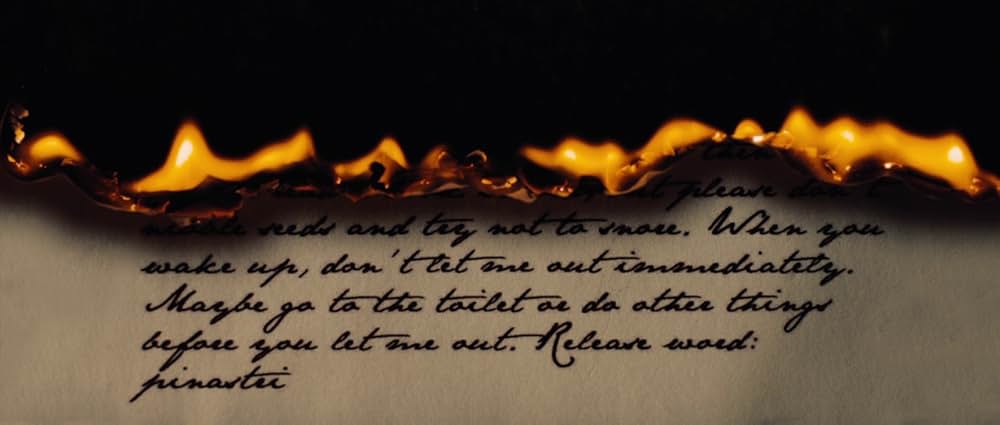 then
please don't
nibble seeds and try not to snore. When you
wake up, don't let me out immediately.
Maybe go to the toilet or do other things
before you let me out. Release word:
pinastri